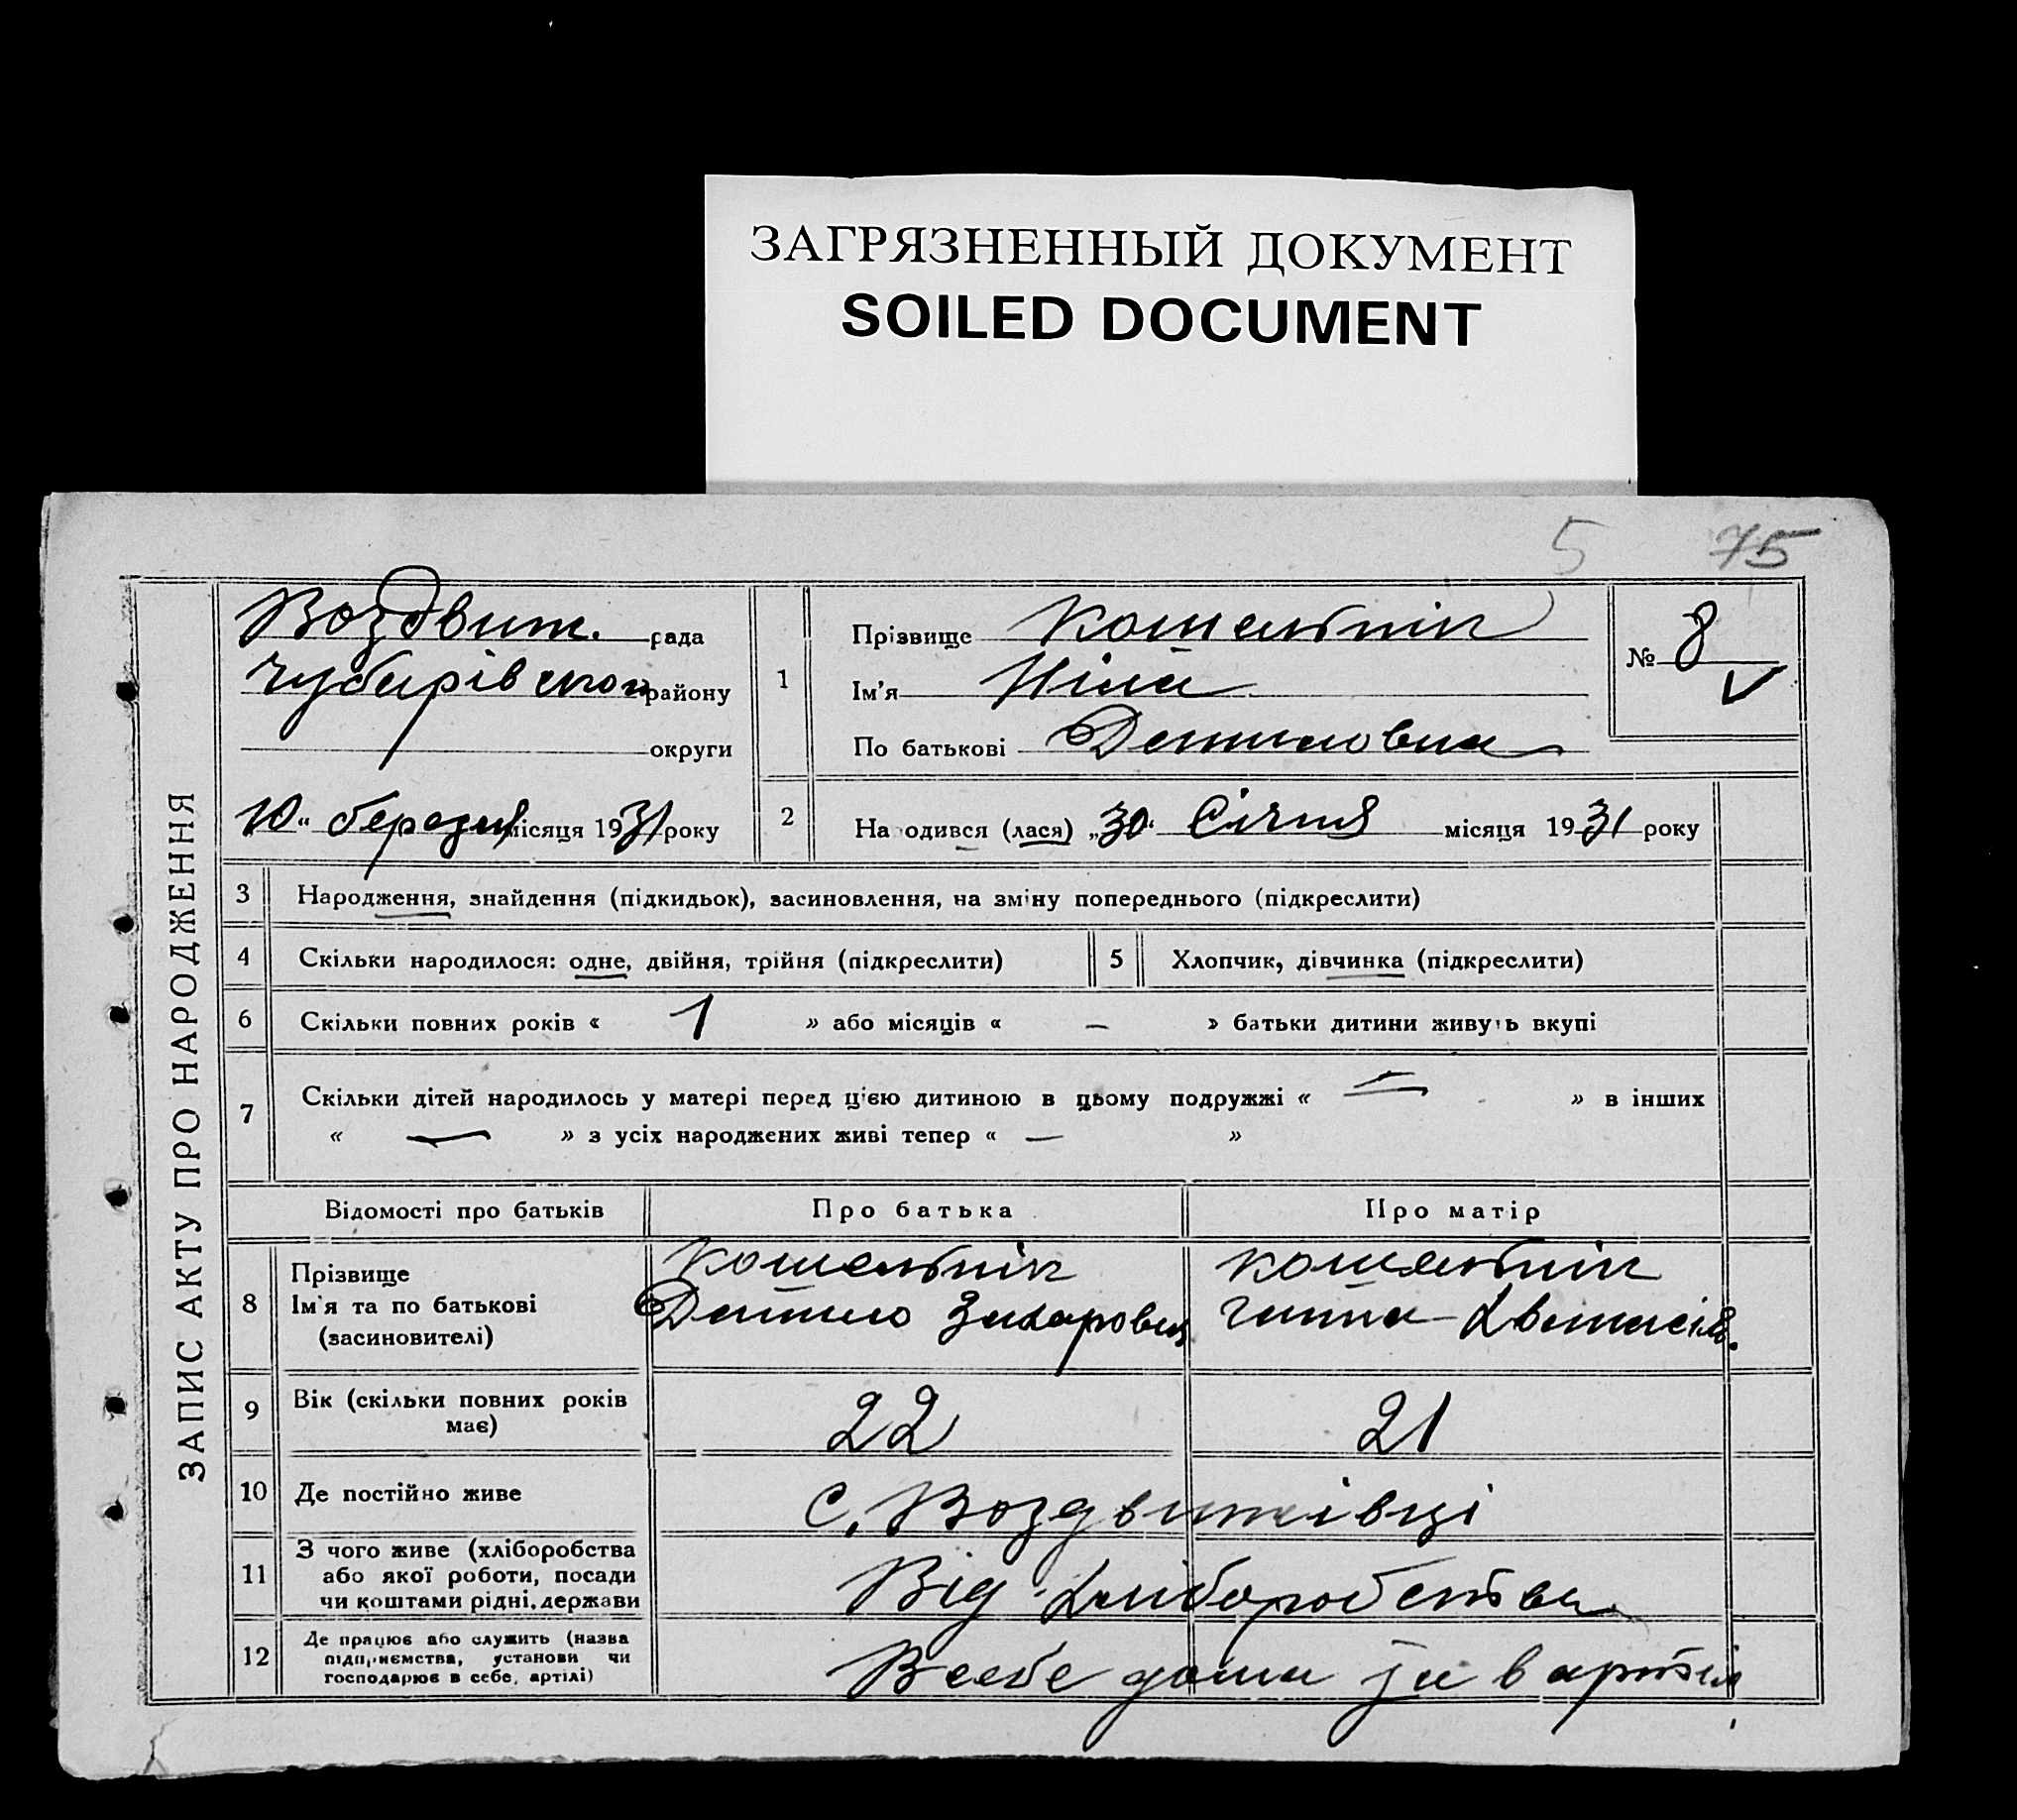 ЗАГРЯЗНЕННЫЙ ДОКУМЕНТ
SOILED DOCUMENT
5 75
ЗАПИС АКТУ ПРО НАРОДЖЕННЯ
Воздвиж. рада
Чубарівського району
округи
10 " березня місяця 1931 року
1
Прізвище Кошельник
Ім'я Ніна
По батькові Даниловна
№ 8
2 На одився (лася) „30" Січня місяця 1931 року
3 Народження, знайдення (підкидьок), засиновлення, на зміну попереднього (підкреслити)
4 Скільки народилося: одне, двійня, трійня (підкреслити) 5 Хлопчик, дівчинка (підкреслити)
6 Скільки повних років « 1 » або місяців « — » батьки дитини живуть вкупі
7 Скільки дітей народилось у матері перед цією дитиною в цьому подружжі « — » в інших
« — » з усіх народжених живі тепер « — »
Відомості про батьків Про батька Про матір
8 Прізвище
Ім'я та по батькові
(засиновителі)
Кошельник
Данило Захарович
Кошельник
9 Вік (скільки повних років
має)
22 21
10 Де постійно живе с. Воздвижівці
11 З чого живе (хліборобства
або якої роботи, посади
чи коштами рідні, держави
Від хліборобства
12 Де працює або служить (назва
підприємства, установи чи
господарює в себе, артілі)
В себе дома в артіл